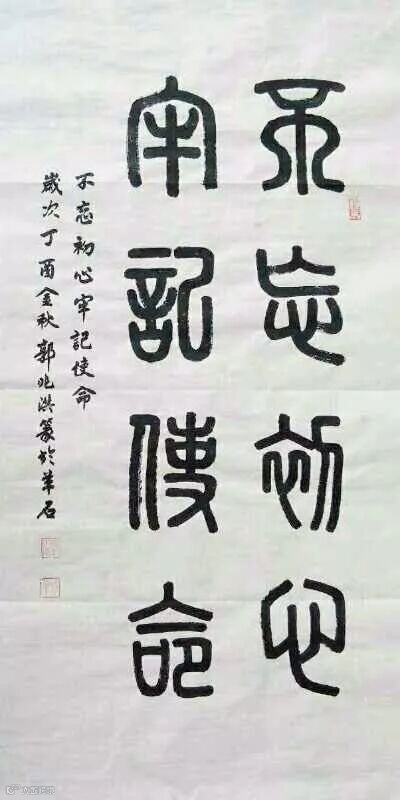 不忘初心
牢記使命
不忘初心牢記使命
歲次丁酉金秋郭兆洪篆於華石